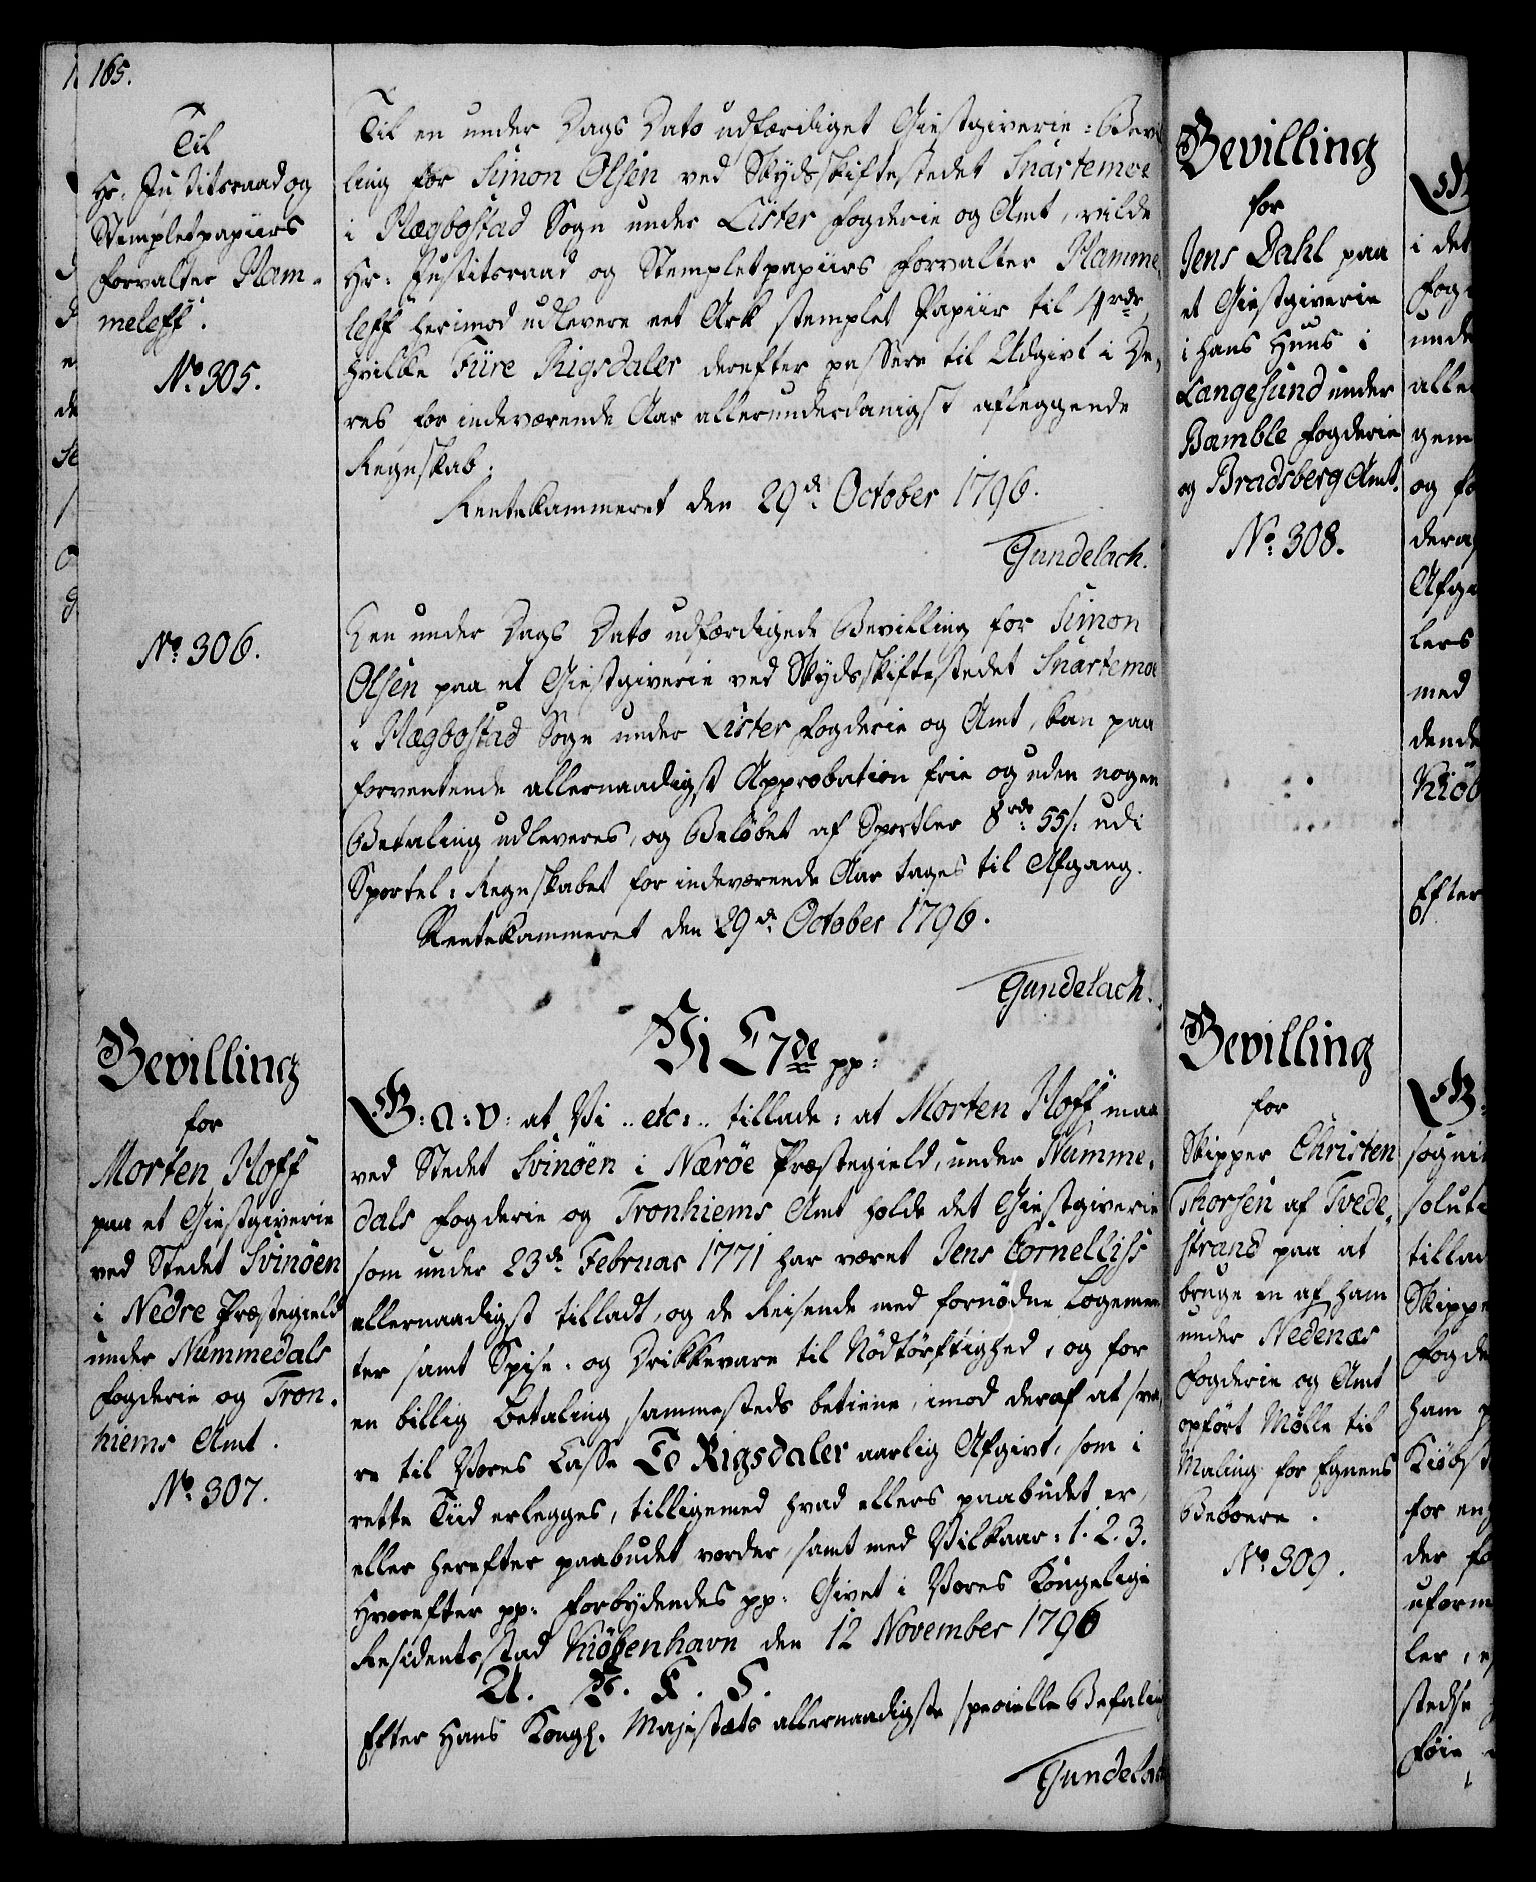 165.
Til
Hr. Justitsraad og
Stempletpapiirs
forvalter Ham-
meleff.
No. 305.
Til en under Dags Dato udfærdiget Giestgiverie: Bevil
ling for Simon Olsen ved Skydsskiftestedet Snartemoe
i Hægbostad Sogn under Lister fogderie og Amt, vilde
Hr: Justitsraad og Stempletpapiirs forvalter Hamme
leff herimod udlevere eet Ark stemplet Papiir til 4 rdr,
hvilke Fiire Rigsdaler derefter passere til Udgivt i De-
res for indeværende Aar allerunderdanigst aflæggende
Regnskab.
Rentekammeret den 29de October 1796.
Gundelach.
No. 306.
Den under Dags Dato udfærdigede Bevilling for Simon
Olsen paa et Giestgiverie ved Skydsskiftestedet Snartemoe
i Hægbostad Sogn under Lister fogderie og Amt, kan paa
forventende allernaadigst Approbation frie og uden nogen
Betaling udleveres, og Beløbet af Sportler 8 rdr 55 s. udi
Sportel: Regnskabet for indeværende Aar tages til Afgang.
Rentekammeret den 29de October 1796.
Gundelach.
Bevilling
for
Morten Hoff
paa et Giestgiverie
ved Stedet Svinöen
i Nedre Præstegield
under Nummedals
fogderie og Tron-
hiems Amt.
No. 307.
Vi C7de pp:
G: A: V: at Vi .. etc: .. tillade: at Morten Hoff, maa
ved Stedet Svinöen i Næröe Præstegield, under Numme-
dals fogderie og Tronhiems Amt holde det Giestgiverie
som under 23de Februar 1771 har været Jens Cornelliss
allernaadigst tilladt, og de Reisende med fornødne Logemen
ter samt Spise- og Drikkevare til Nödtörftighed, og for
en billig Betaling sammesteds betiene, imod deraf at sva-
re til Vores Casse To Rigsdaler aarlig Afgivt, som i
rette Tiid erlegges, tilligemed hvad ellers paabudet er,
eller herefter paabudet vorder, samt med Vilkaar: 1. 2. 3.
Hvorefter pp: forbydendes pp: Givet i Vores Kongelige
Residentsstad Kiöbenhavn den 12 November 1796
U. H. K. S.
Efter Hans Kongl. Majestæts allernaadigste specielle Befaling
Gundelach
Bevilling
for
Jens Dahl paa
et Giestgiverie
i hans Huus i
Langesund under
Bamble fogderie
og Bradsberg Amt.
No. 308.
Bevilling
for
Skipper Christen
Thorsen af Tvede-
strand paa at
bruge en af ham
under Nedenæs
fogderie og Amt
opfört Mölle til
Maling for Egnens
Beboere.
No. 309.
i det
fog
unde
alle
gem
og fo
deraf
Afgi
lers
med
dende
Kiöb
Efter
sogni
solut
tillad
Skippe
fogde
ham
Kiöbst
for en
der
uform
ler,
stedse
föie